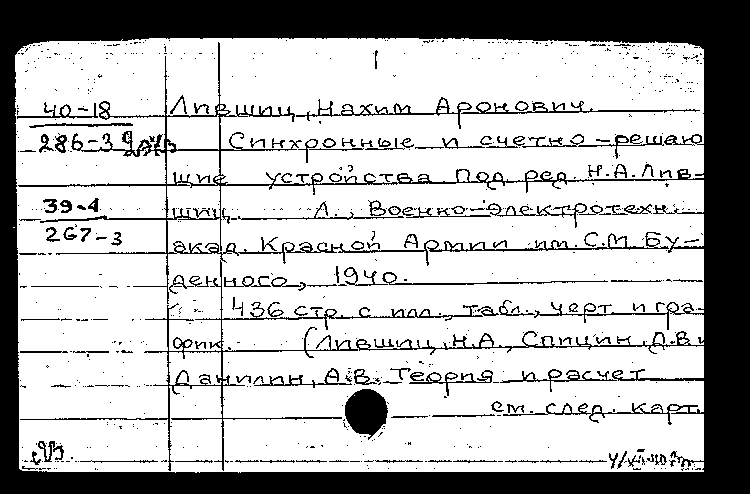 1
40-18 Лившиц, Нахим Аронович.
286-3 Синхронные и счетно-решаю
щие устройства Под ред. Н.А.Лив-
39-4 шиц. Л., Военно-электротехн.
267-3 акад. Красной Армии им. С.М. Бу-
денного, 1940.
436 стр. с илл., табл., черт. и гра-
фик. (Лившиц, Н.А., Спицин, Д.В. и
Данилин, А.В. Теория и расчет
см. след. карт.